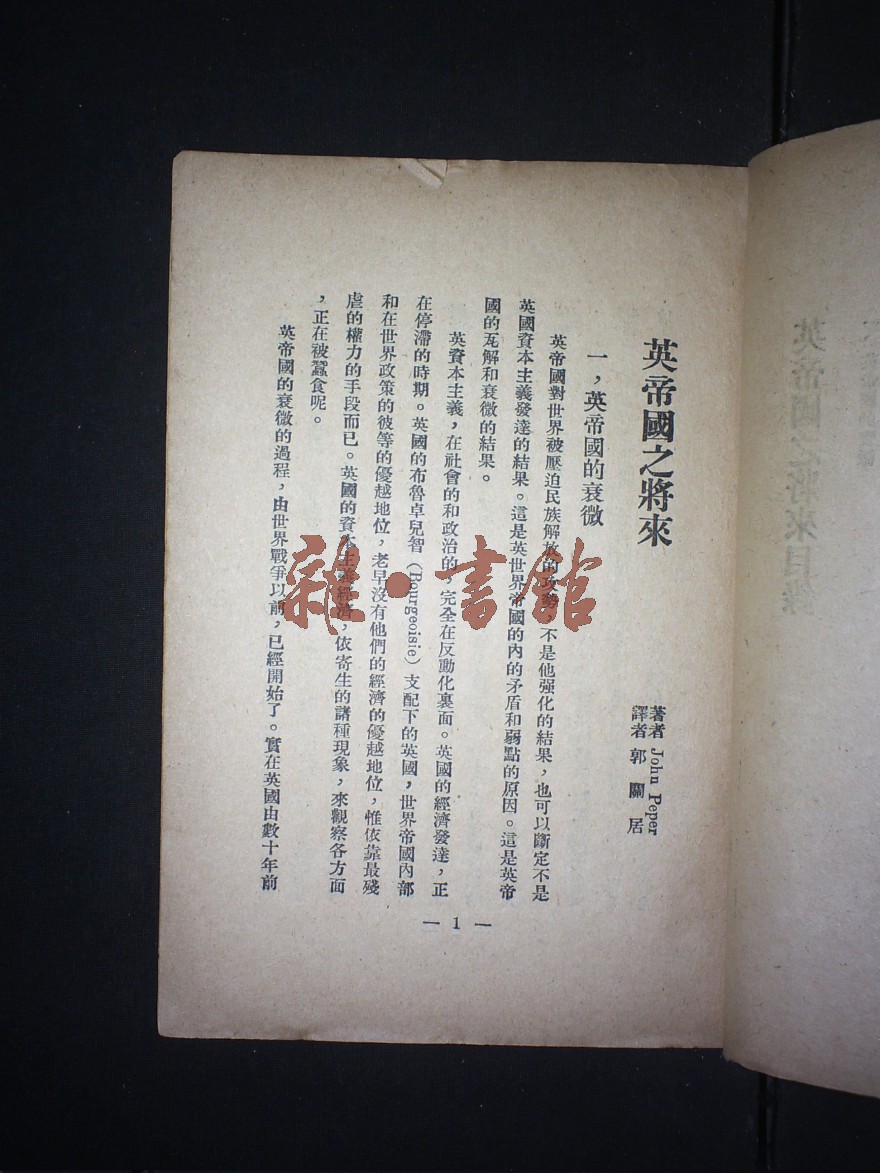 英帝國之將來
著者 John Peper
譯者 郭關居
一，英帝國的衰微
英帝國對世界被壓迫民族解放的攻勢，不是他强化的結果，也可以斷定不是
英國資本主義發達的結果。這是英世界帝國的內的矛盾和弱點的原因。這是英帝
國的瓦解和衰微的結果。
英資本主義，在社會的和政治的，完全在反動化裏面。英國的經濟發達，正
在停滯的時期。英國的布魯卓兒智（Bourgeoisie）支配下的英國，世界帝國內部
和在世界政策的彼等的優越地位，老早沒有他們的經濟的優越地位，惟依靠最殘
虐的權力的手段而已。英國的資本主義經濟，依寄生的諸種現象，來觀察各方面
，正在被蠶食呢。
英帝國的衰微的過程，由世界戰爭以前，已經開始了。實在英國由數十年前
— 1 —
雜·書館
英帝國之將來目錄